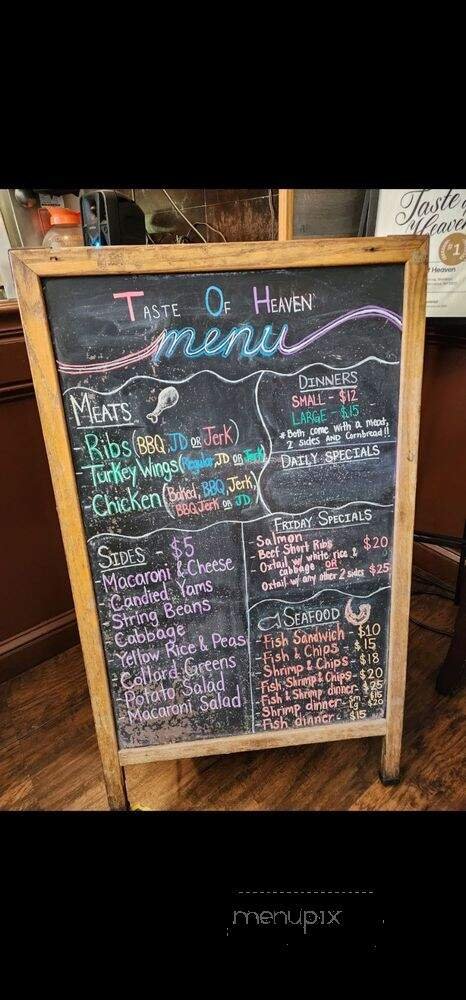 Taste of
Heaven
#1
Heaven
TASTE OF HEAVEN
menu
MEATS
- Ribs (BBQ, JD OR Jerk)
- Turkey Wings (Regular, JD OR Jerk)
- Chicken (Baked, BBQ, Jerk,
BBQ Jerk OR JD)
DINNERS
SMALL - $12
LARGE - $15
* Both come with a meat,
2 sides AND Cornbread!!
DAILY SPECIALS
FRIDAY SPECIALS
- Salmon
- Beef Short Ribs $20
- Oxtail w/ white rice &
cabbage OR
Oxtail w/ any other 2 sides $25
SIDES - $5
- Macaroni & Cheese
- Candied Yams
- String Beans
- Cabbage
- Yellow Rice & Peas
- Collard Greens
- Potato Salad
- Macaroni Salad
SEAFOOD
- Fish Sandwich - $10
- Fish & Chips - $15
- Shrimp & Chips - $18
- Fish, Shrimp & Chips - $20
- Fish & Shrimp dinner - $25
- Shrimp dinner - Sm $15
Lg $20
- Fish dinner - $15
menupix